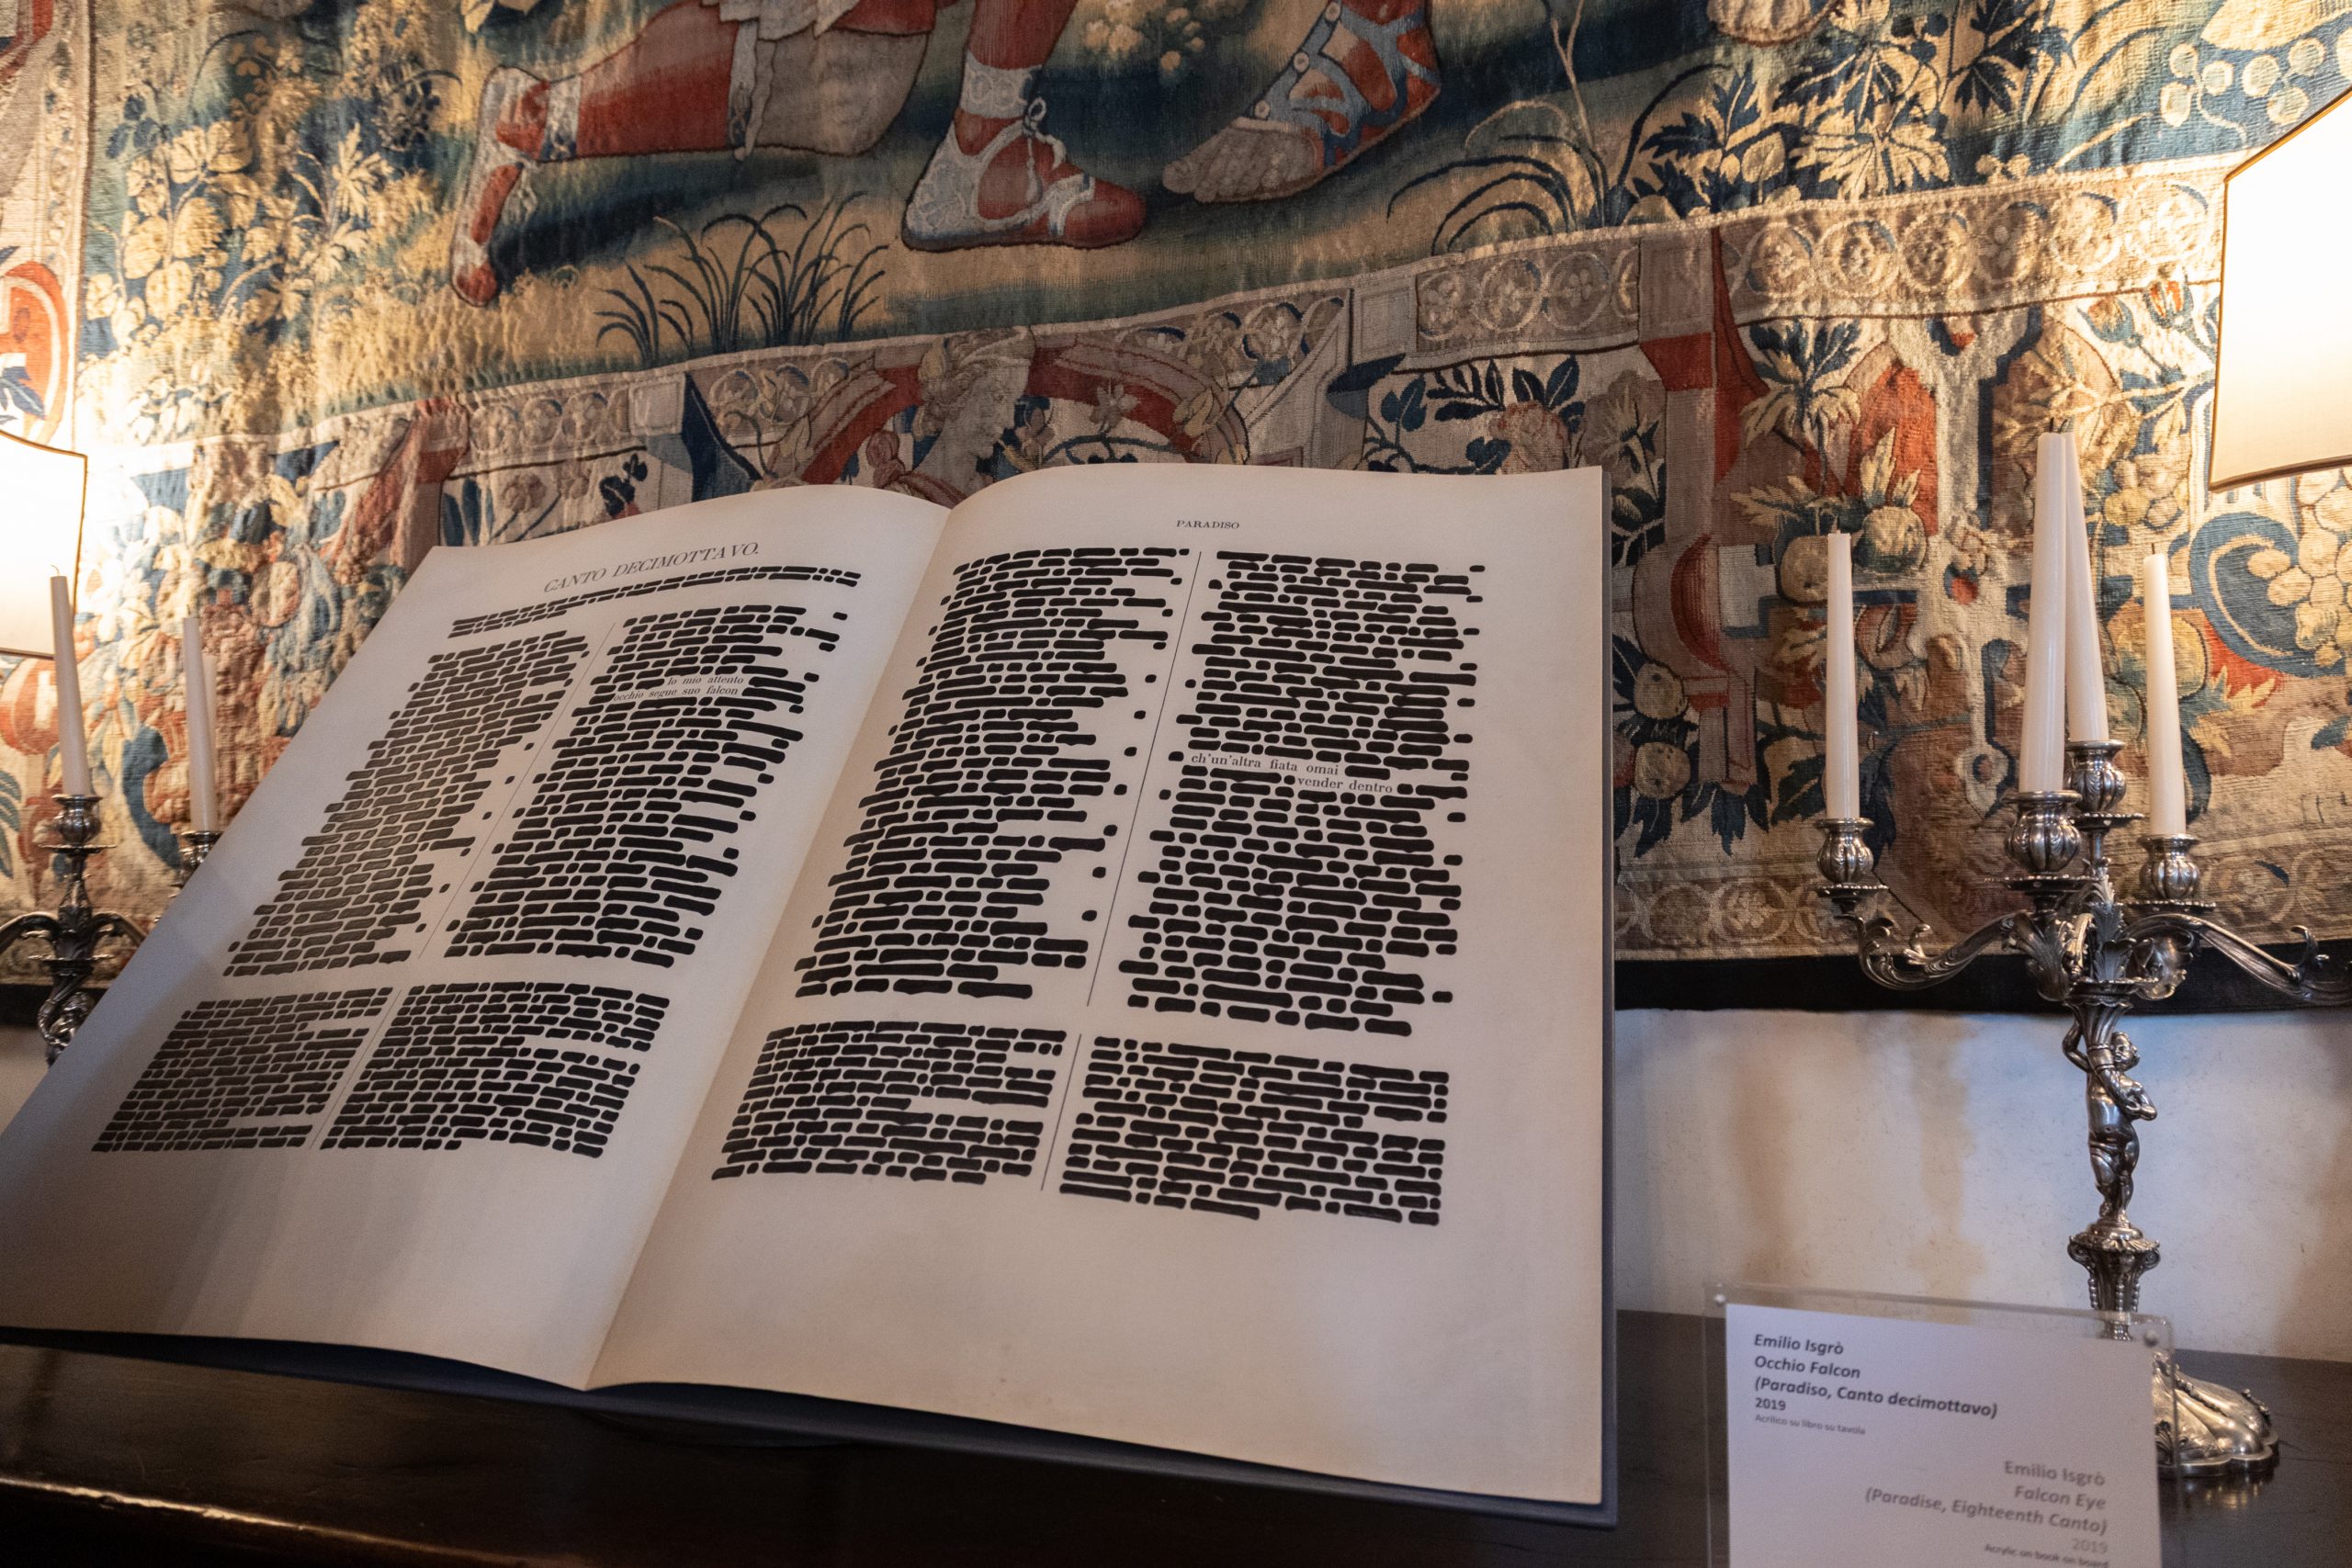 CANTO DECIMOTTAVO.
lo mio attento
occhio segue suo falcon
PARADISO
ch'un'altra fiata omai
vender dentro
Emilio Isgrò
Occhio Falcon
(Paradiso, Canto decimottavo)
2019
Acrilico su libro su tavola
Emilio Isgrò
Falcon Eye
(Paradise, Eighteenth Canto)
2019
Acrylic on book on board